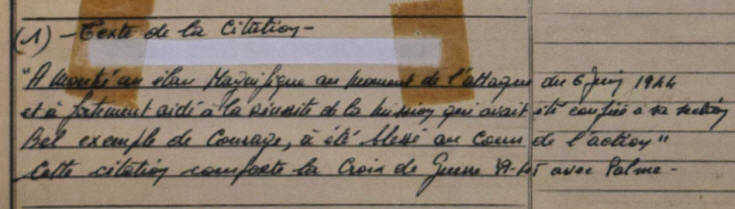 (1) - Texte de la Citation -
"A montré un élan Magnifique au moment de l'attaque du 6 juin 1944
et a fortement aidé à la réussite de la mission qui avait été confiée à sa section
Bel exemple de Courage, a été blessé au cours de l'action"
Cette citation comporte la Croix de Guerre avec Palme -